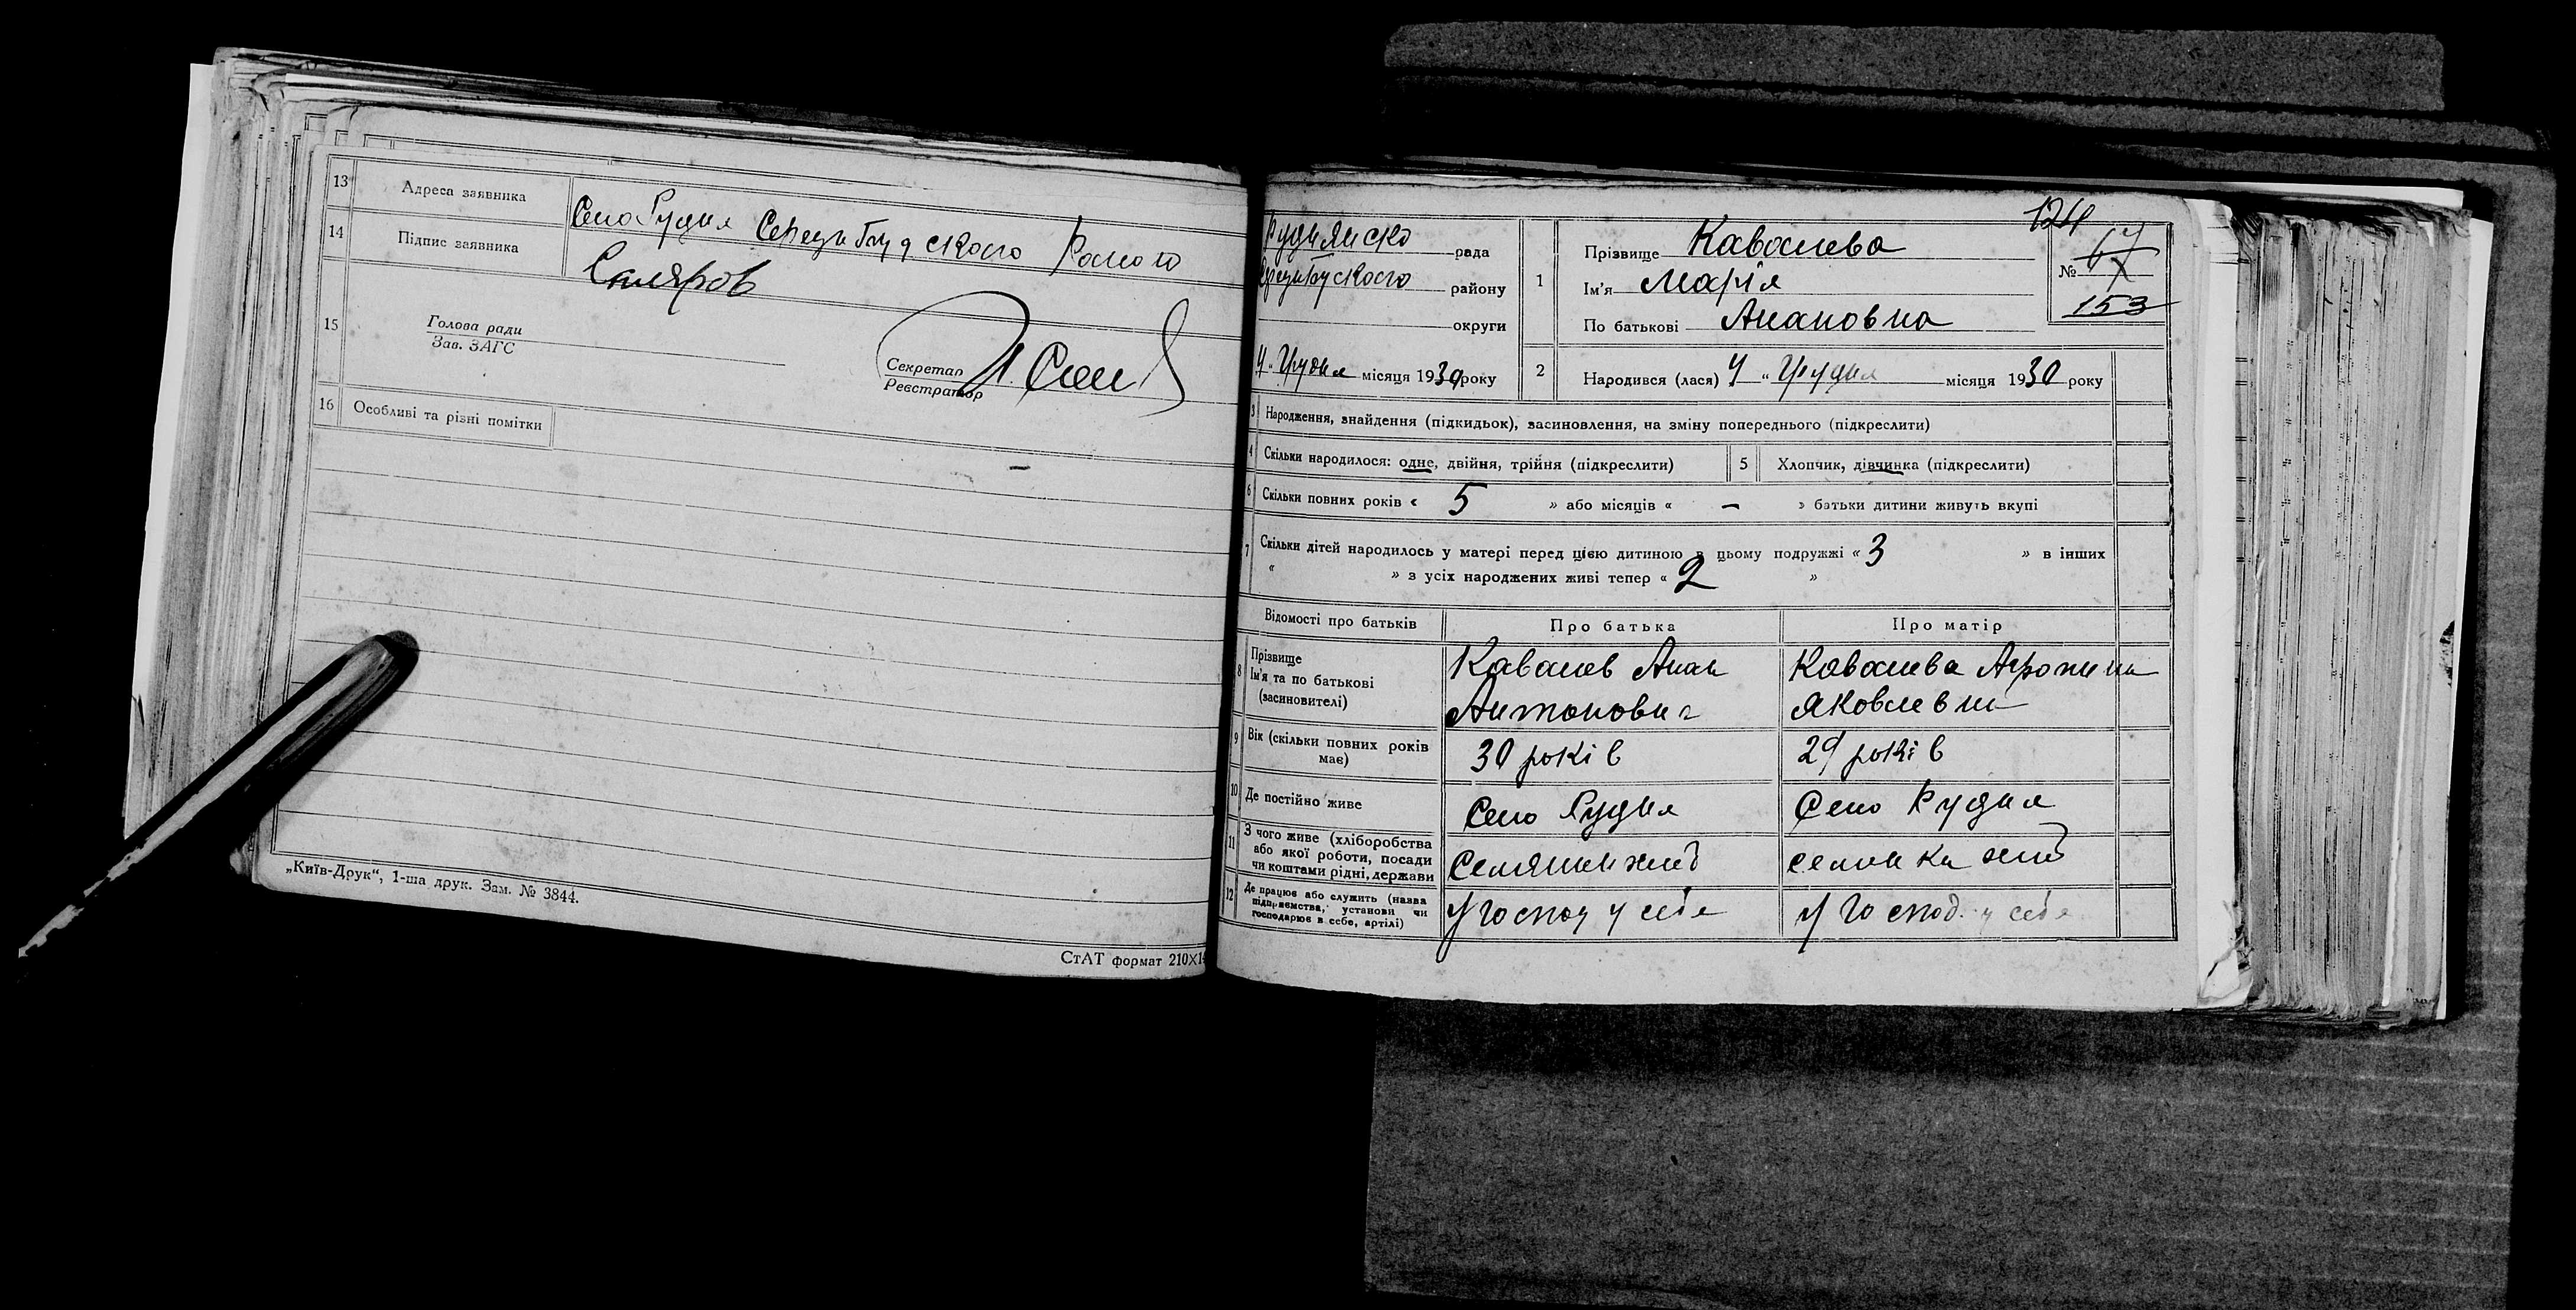 13 Адреса заявника Село Рудня Середи Будского Району
14 Підпис заявника Скляров
15 Голова ради
Зав. ЗАГС
Секретар
Реєстратор
16 Особливі та різні помітки
„Київ-Друк“, 1-ша друк. Зам. № 3844.
СтАТ формат 210×14
124
Рудняиско рада
району
округи
4 „ Грудня місяця 1930 року
1 Прізвище Кавалева
Ім’я Марія
По батькові Анановна
№ 67
153
2 Народився (лася) 4 “ Грудня місяця 1930 року
3 Народження, знайдення (підкидьок), засиновлення, на зміну попереднього (підкреслити)
4 Скільки народилося: одне, двійня, трійня (підкреслити) 5 Хлопчик, дівчинка (підкреслити)
6 Скільки повних років « 5 » або місяців « – » батьки дитини живуть вкупі
7 Скільки дітей народилось у матері перед цією дитиною в цьому подружжі « 3 » в інших
« » з усіх народжених живі тепер « 2 »
Відомості про батьків Про батька Про матір
8 Прізвище
Ім’я та по батькові
(засиновителі)
Кавалев Анан
Антонович
Ковалева
Яковлевна
9 Вік (скільки повних років
має)
30 років 29 років
10 Де постійно живе Село Рудня Село Рудня
11 З чого живе (хліборобства
або якої роботи, посади
чи коштами рідні, держави
12 Де працює або служить (назва
підприємства, установи чи
господарює в себе, артілі)
у себе у себе